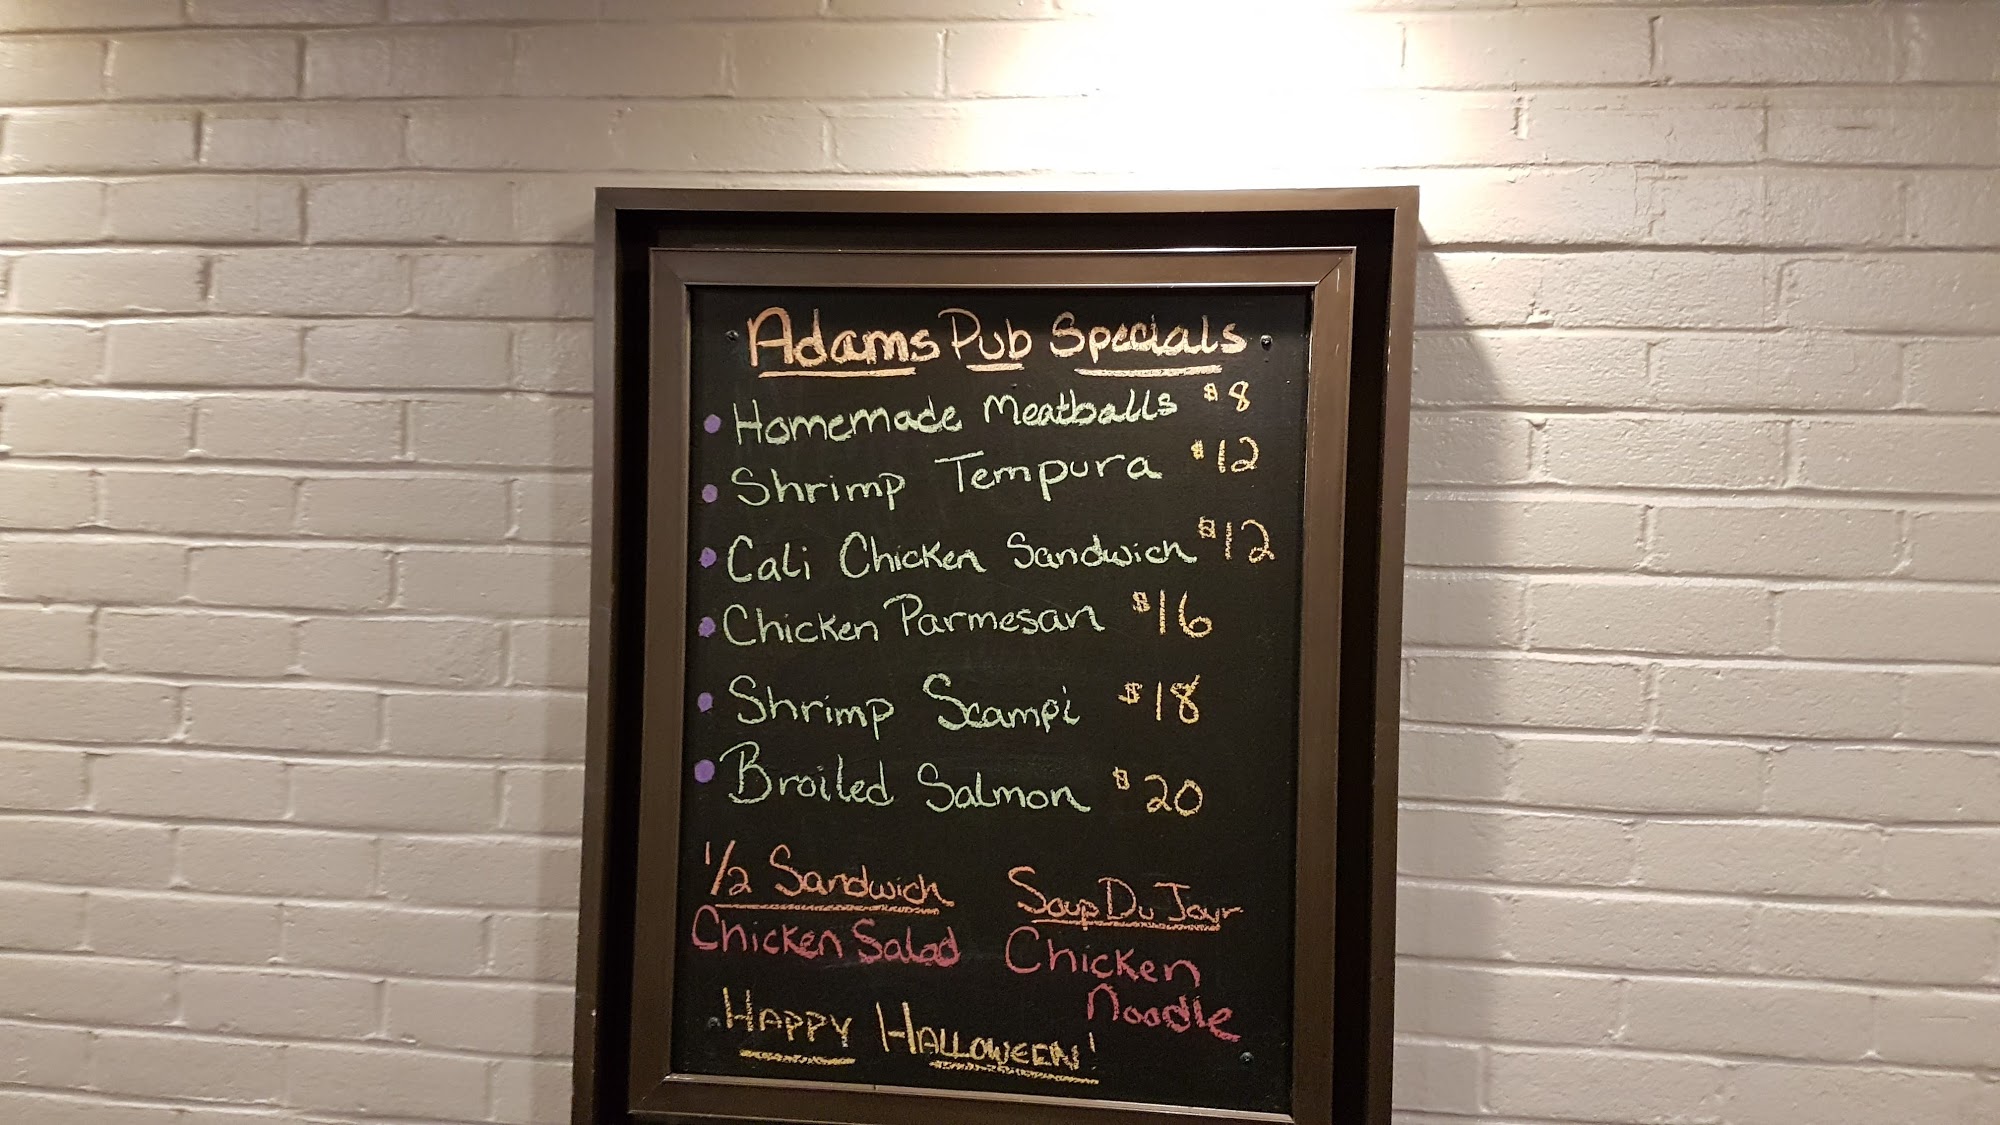 Adams Pub Specials
• Homemade Meatballs $8
• Shrimp Tempura $12
• Cali Chicken Sandwich $12
• Chicken Parmesan $16
• Shrimp Scampi $18
• Broiled Salmon $20
1/2 Sandwich
Chicken Salad
Soup Du Jour
Chicken
Noodle
HAPPY HALLOWEEN!